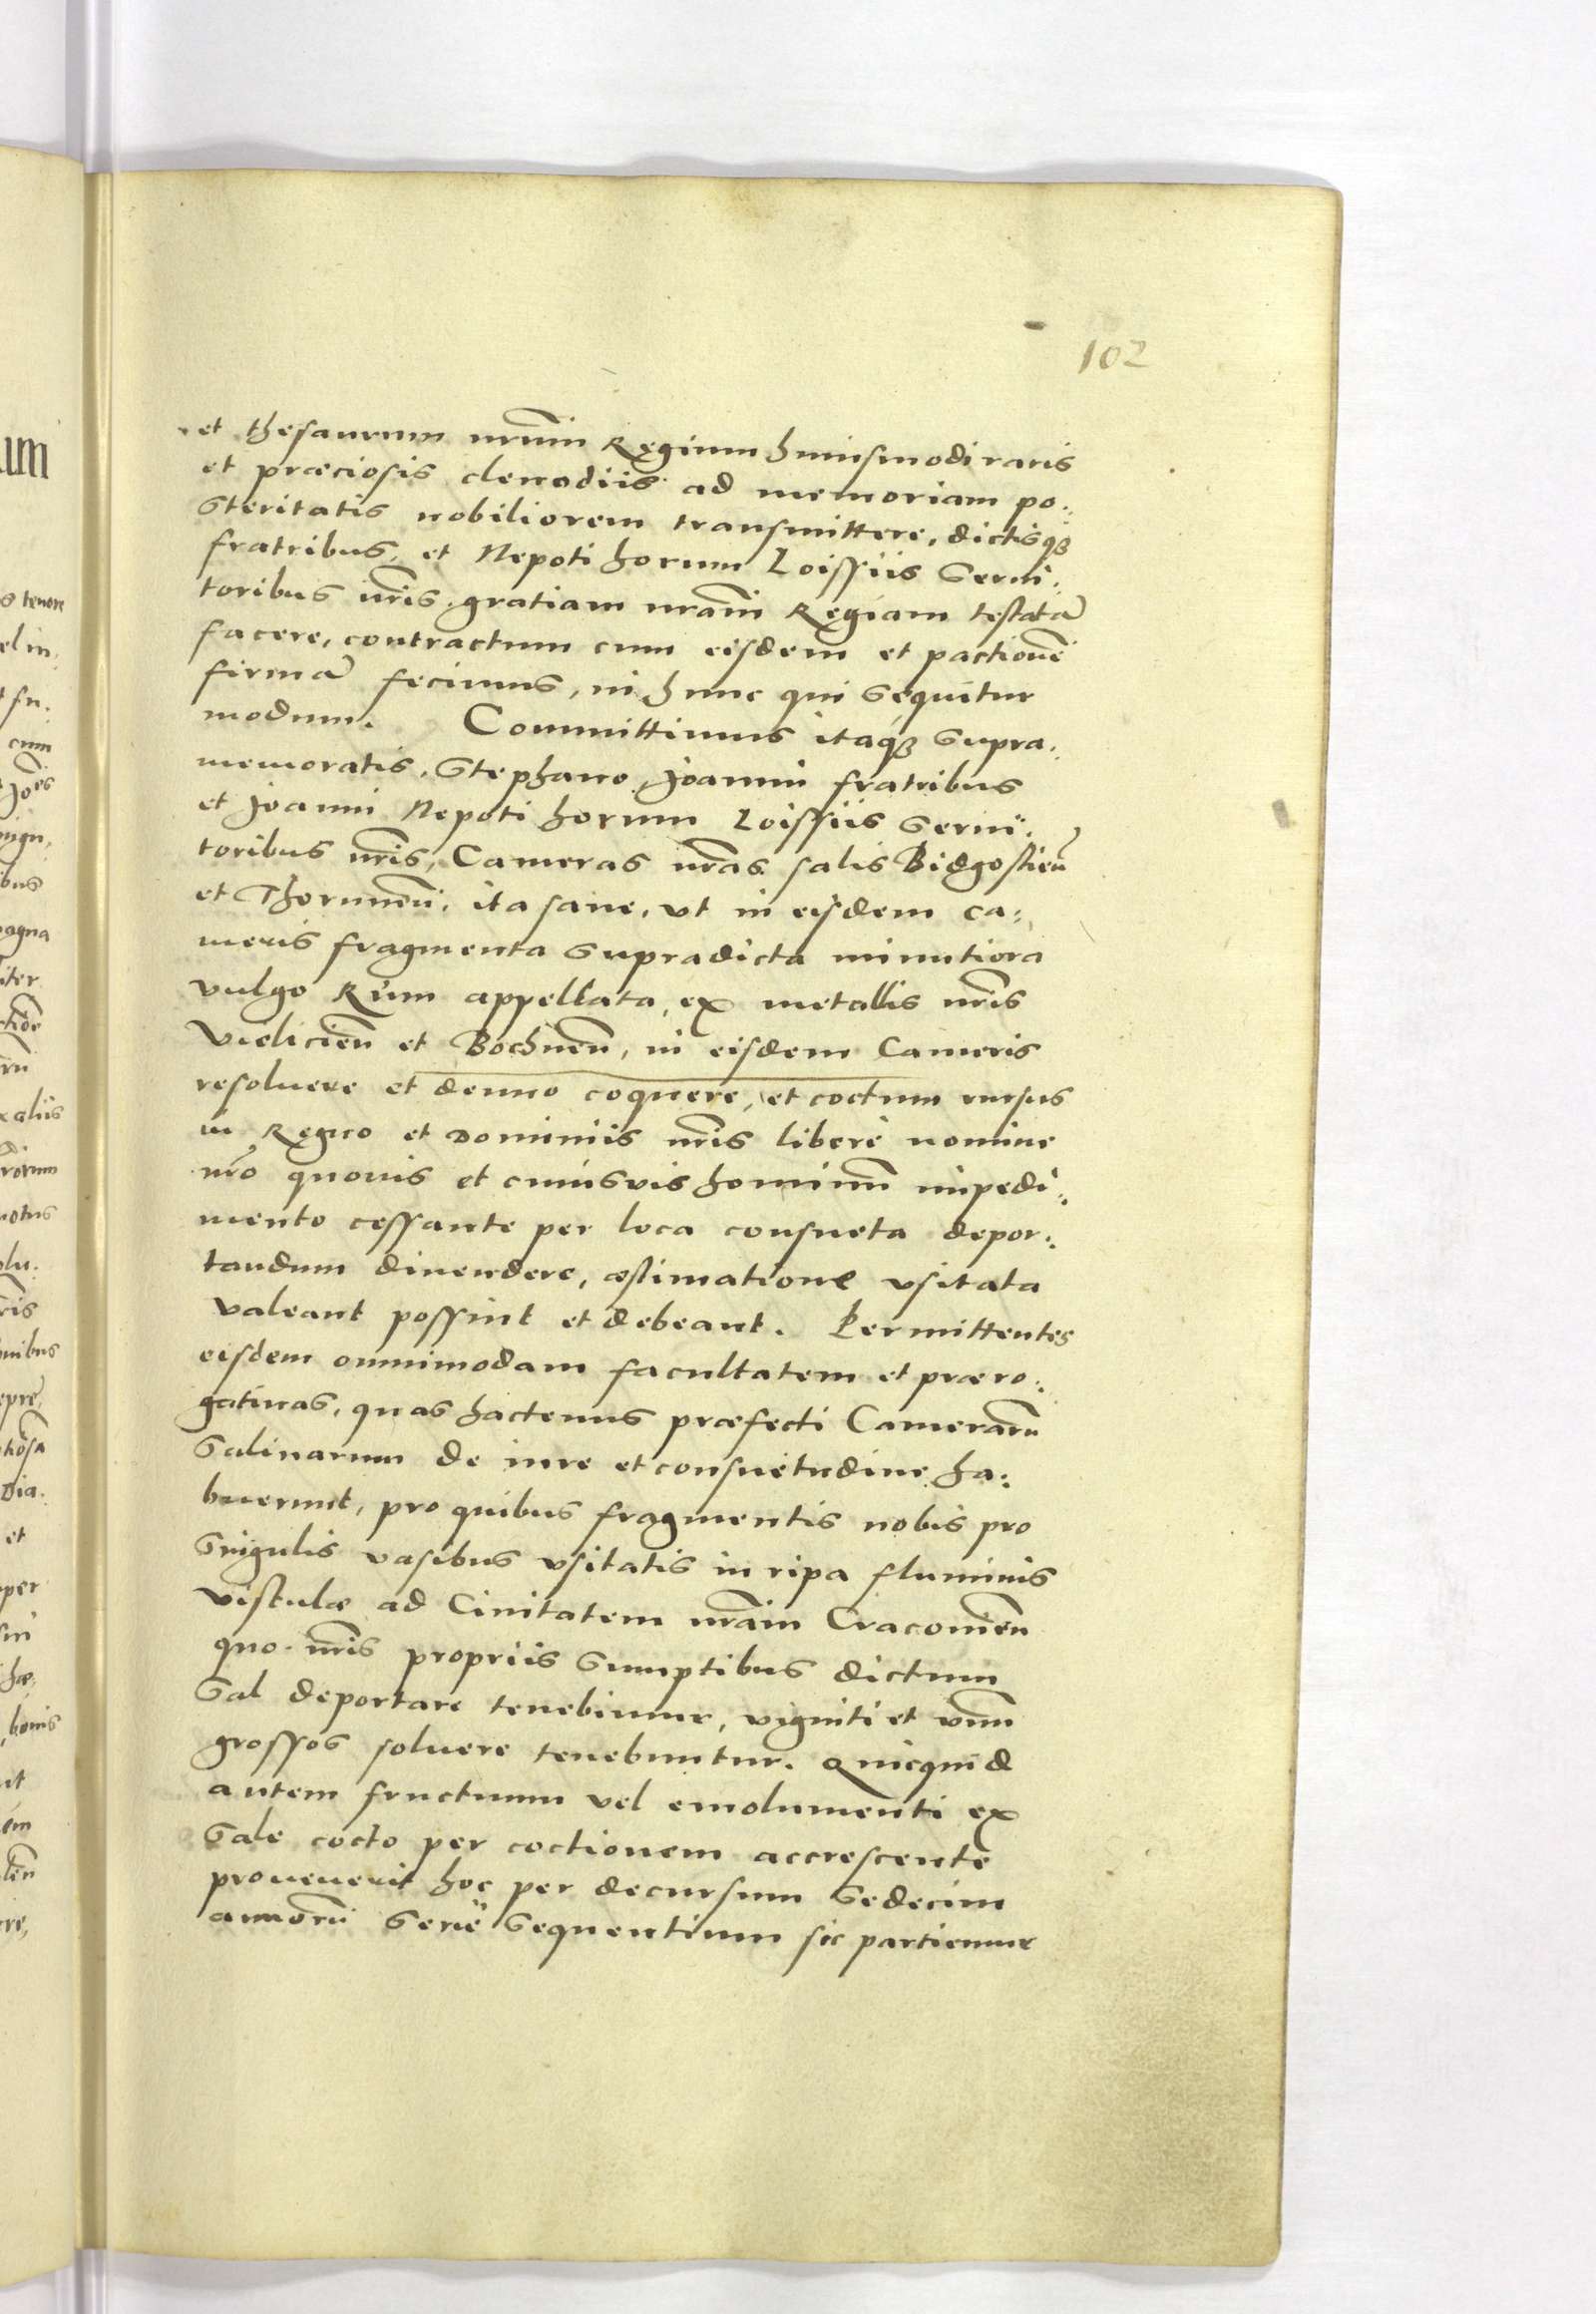 102
et thesaurum nrũm Regium huiusmodi raris
et præciosis clenodiis ad memoriam po:
steritatis nobiliorem transmittere, dictisqꝫ
fratribus, et Nepoti horum Loissiis Serui:
toribus nr̃is gratiam nrãm Regiam testatã
facere, contractum cum eisdem et pactionẽ
firmã fecimus, in hunc qui sequitur
modum. Committimus itaqꝫ supra:
memoratis, Stephano Joanni fratribus
et Joanni Nepoti horum Loissiis Serui:
toribus nr̃is, Cameras nr̃as salis Bidgostieñ
et Thoruneñ, ita sane, vt in eisdem ca:
meris fragmenta supradicta minutiora
vulgo Rum appellata, ex metallis nr̃is
Vielicieñ et Bochneñ, in eisdem Cameris
resoluere et denuo coquere, et coctum rursus
in Regno et Dominiis nr̃is liberè nomine
nr̃o quouis et cuiusvis hominum impedi:
mento cessante per loca consueta depor:
tandum diuendere, æstimatione vsitata
valeant possint et debeant. Permittentes
eisdem omnimodam facultatem et præro:
gatiuas, quas hactenus præfecti Camerarũ
Salinarum de iure et consuetudine ha:
buerunt, pro quibus fragmentis nobis pro
singulis vasibus vsitatis in ripa fluminis
Vistulæ ad Ciuitatem nrãm Cracouieñ
quo nr̃is propriis sumptibus dictum
Sal deportare tenebimur, viginti et vnũ
grossos soluere tenebuntur. Quicquid
autem fructuum vel emolumenti ex
Sale cocto per coctionem accrescente
prouenerit hoc per decursum Sedecim
annorũ Serie sequentium sic partiemur